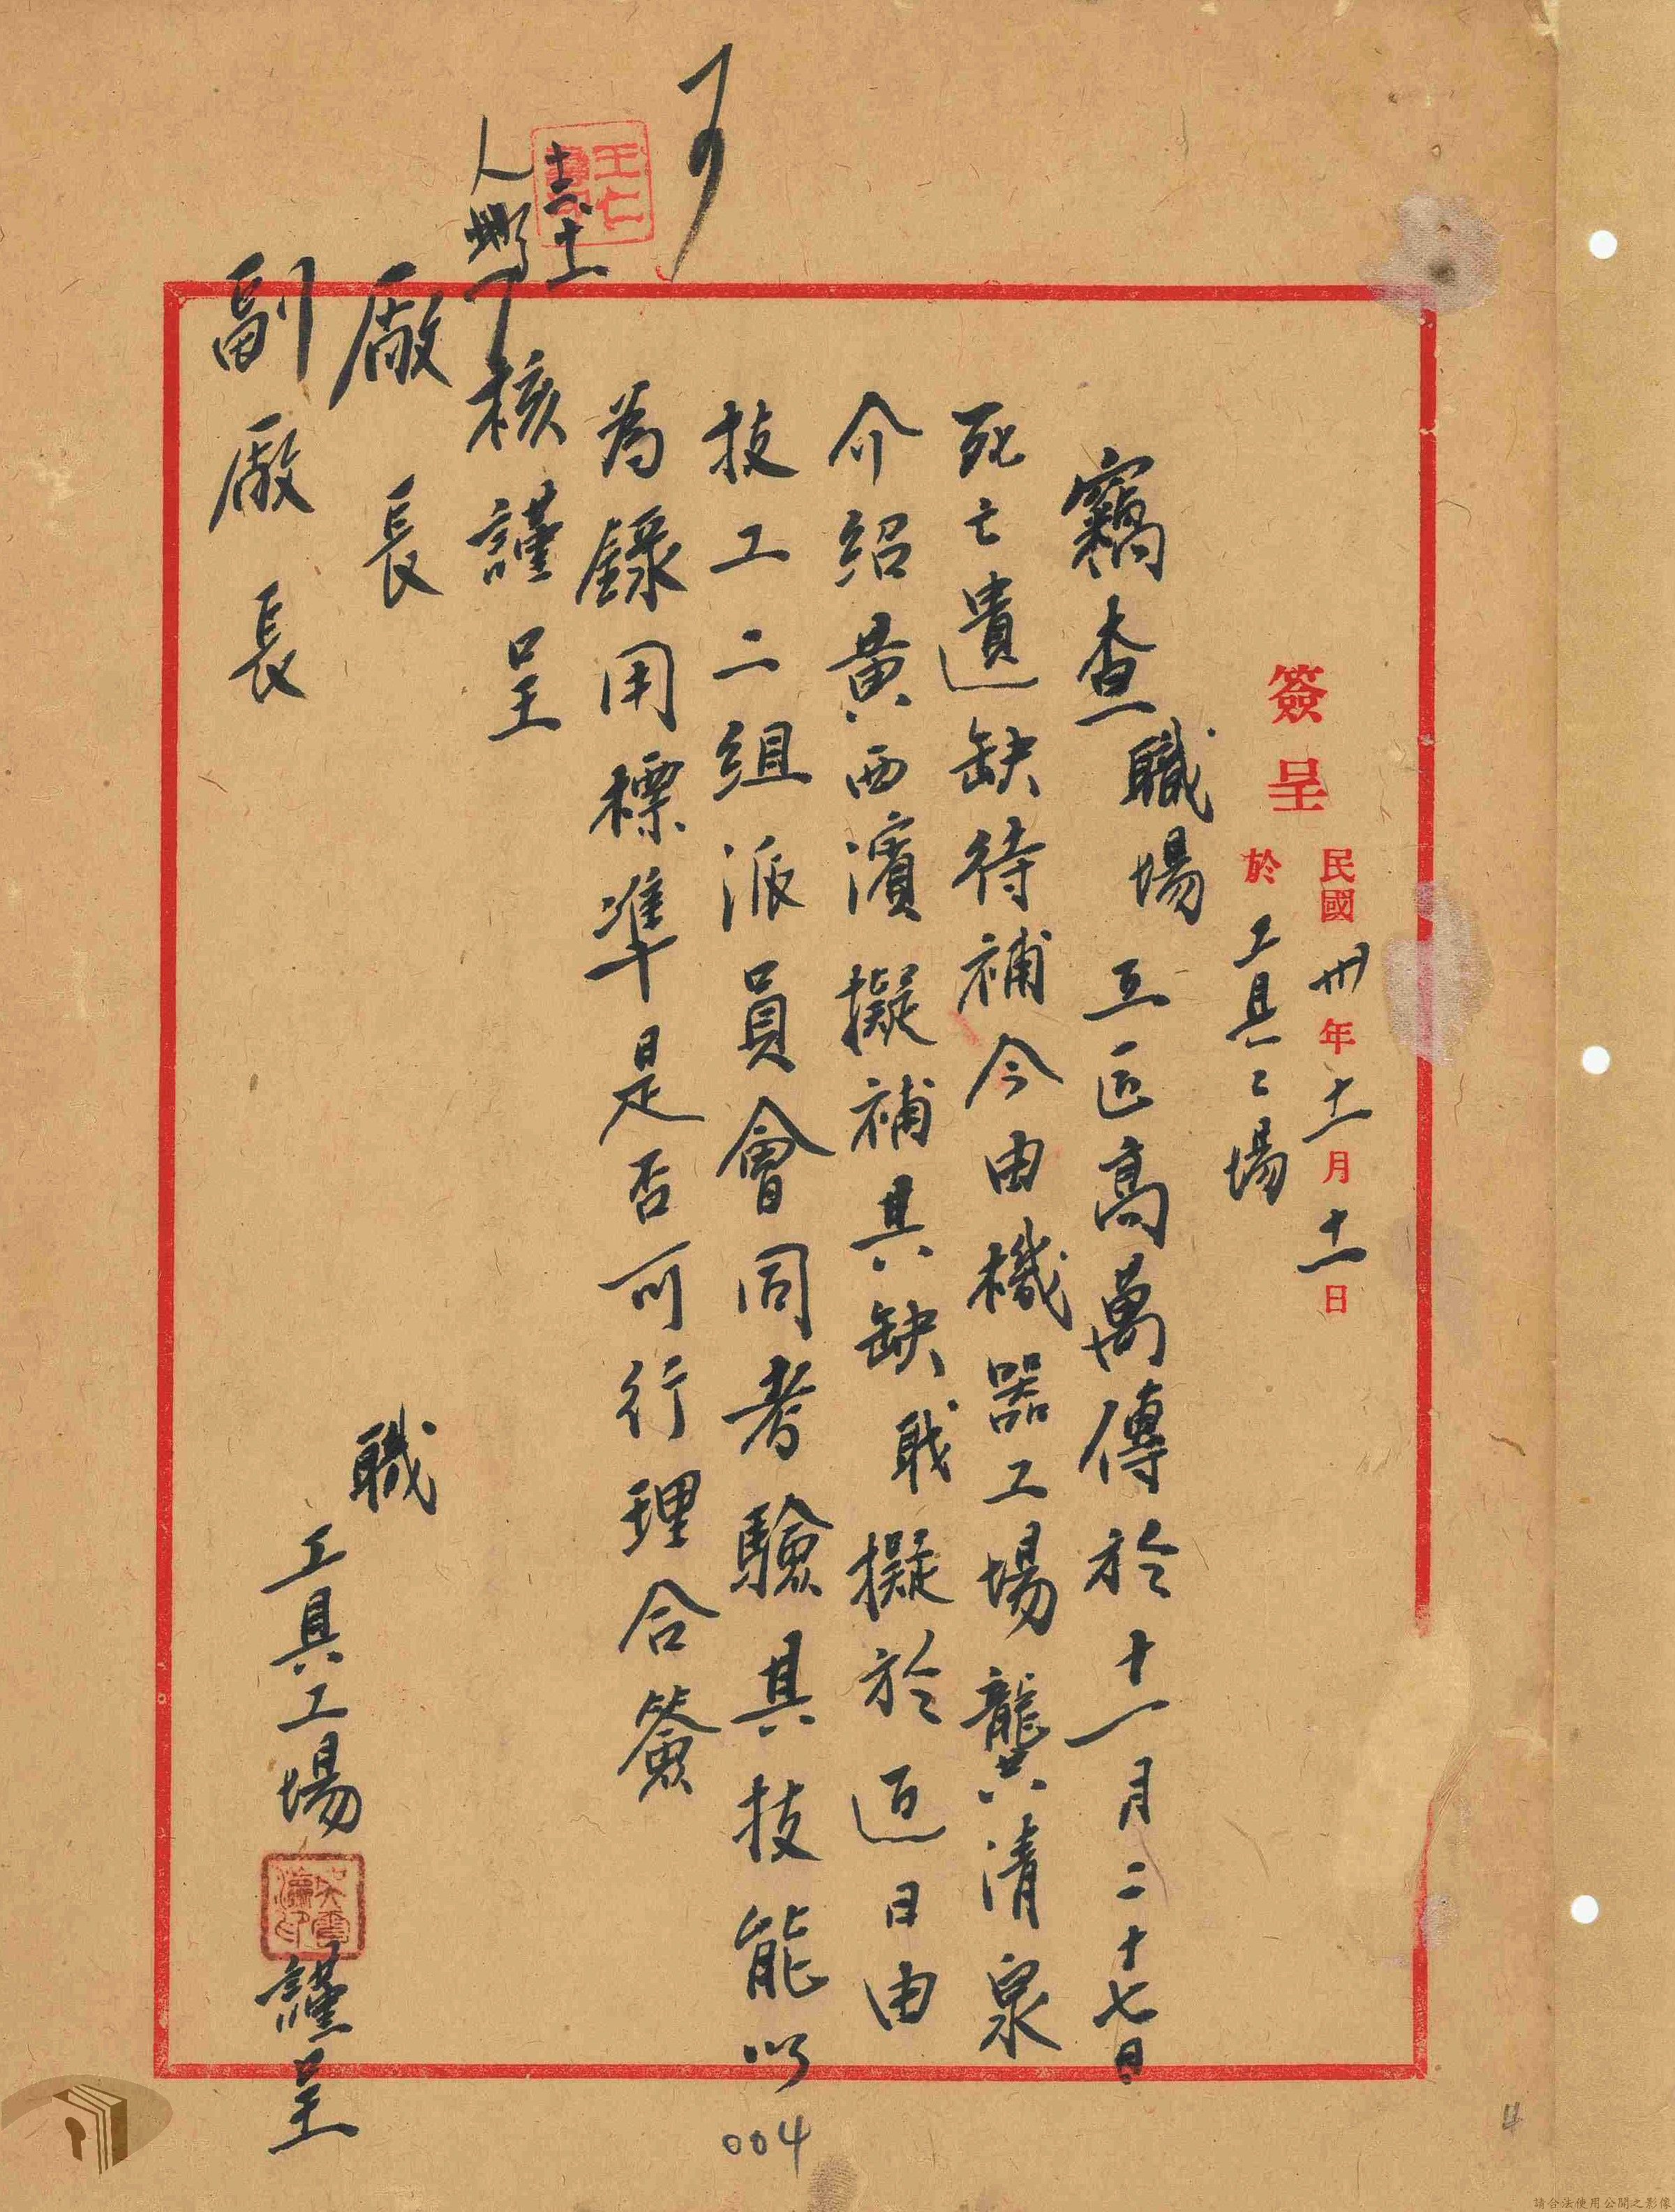 簽呈
民國卅年十一月十一日
於工具工場
竊查職場工匠高萬傳於十一月二十七日
死亡遺缺待補今由機器工場龔清泉
介紹黃西濱擬補其缺職擬於近日由
技工二組派員會同考驗其技能以
為錄用標準是否可行理合簽
核謹呈
廠長
副廠長
職
工具工場
謹呈
可
王仁
十二、十一
004
4
請合法使用公開之影像